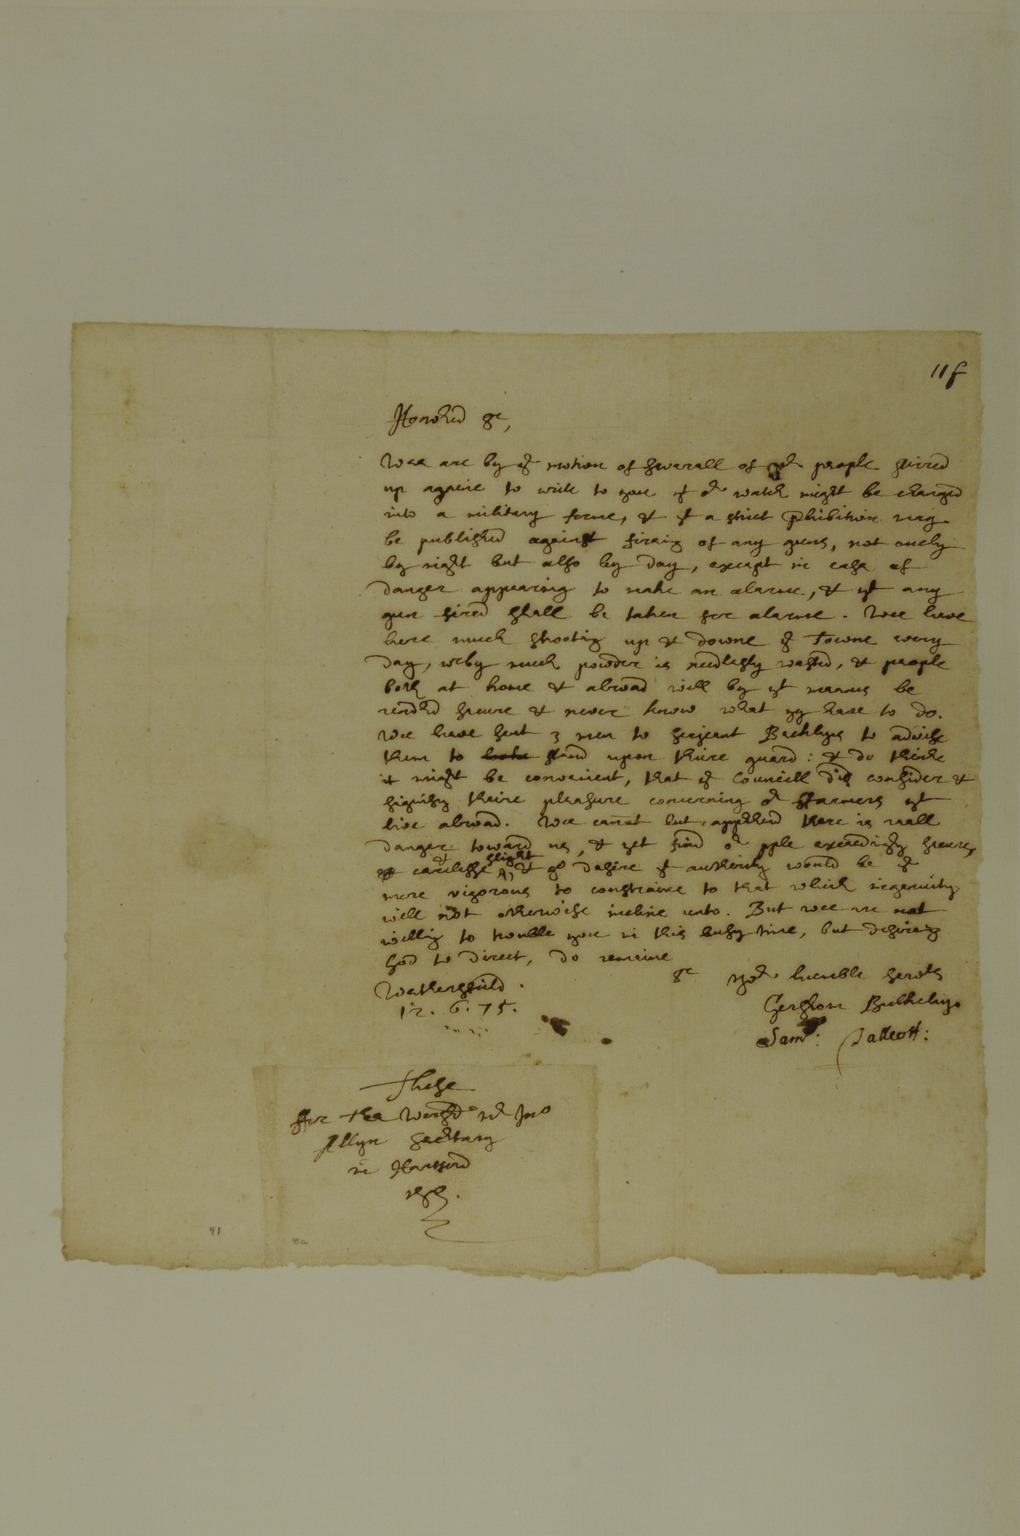 115
Honored &c,
Wee are by ye motion of severall of or people stirred
up againe to write to you yt or watch might be changed
into a military forme, & yt a strict prhibition may
be published against firing of any guns, not onely
by night but also by day, except in case of
danger appearing to make an alarme, & yt any
gun fired shall be taken for alarme. Wee have
here much shooting up & downe ye Towne every
day, wrby much powder is needlesly wasted, & people
both at home & abroad will by yt meanes be
rendred secure & never know what yy have to do.
Wee have sent 3 men to serjeant to advise
them to stand upon theire guard: & do thinke
it might be convenient, that ye Councill did consider &
signify theire pleasure concerning or ffarmers yt
live abroad. Wee cannot but apprhend there is reall
danger toward us, & yet find or pple exceedingly secure,
& carelesse & slight & do desire yt authority would be ye
more vigorous to constraine to that which ingenuity
will not otherwise incline unto. But wee are not
willing to trouble you in this busy time, but desiring
God to direct, do remaine
&c yor humble servts
Wethersfeild.
12. 6. 75.
Gershom Bulkeley.
Saml: Talcott:
These
ffor the Worshpll mr Jno
Allyn Secretary
in Hartford
41